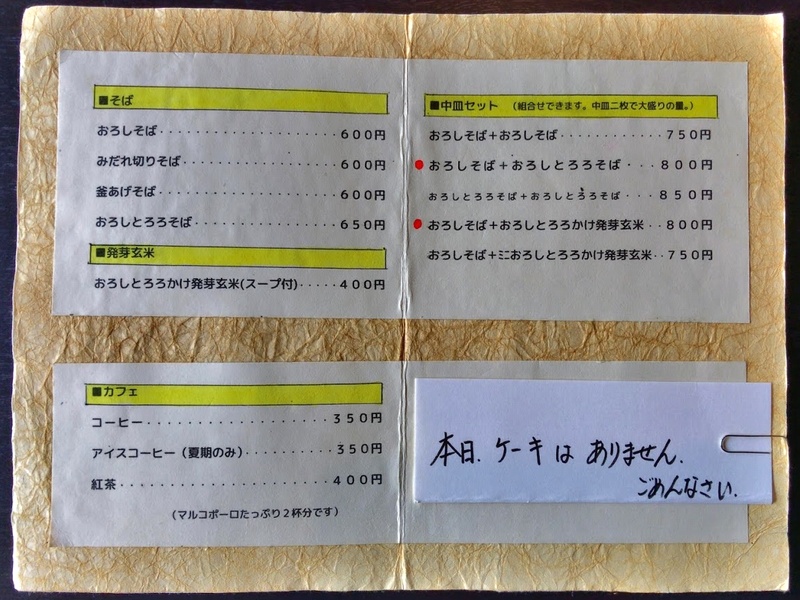 ■そば
おろしそば・・・・・・・・・・・・・・・・・・600円
みだれ切りそば・・・・・・・・・・・・・・・600円
釜あげそば・・・・・・・・・・・・・・・・・・600円
おろしとろろそば・・・・・・・・・・・・・・650円
■発芽玄米
おろしとろろかけ発芽玄米(スープ付)・・・・・400円
■中皿セット （組合せできます。中皿二枚で大盛りの量。）
おろしそば＋おろしそば・・・・・・・・・・・750円
●おろしそば＋おろしとろろそば・・・800円
おろしとろろそば＋おろしとろろそば・・・850円
●おろしそば＋おろしとろろかけ発芽玄米・・800円
おろしそば＋ミニおろしとろろかけ発芽玄米・・750円
■カフェ
コーヒー・・・・・・・・・・・・・・・・・・350円
アイスコーヒー（夏期のみ）・・・・・・・・・350円
紅茶・・・・・・・・・・・・・・・・・・・・・400円
（マルコポーロたっぷり２杯分です）
本日、ケーキは ありません。
ごめんなさい。